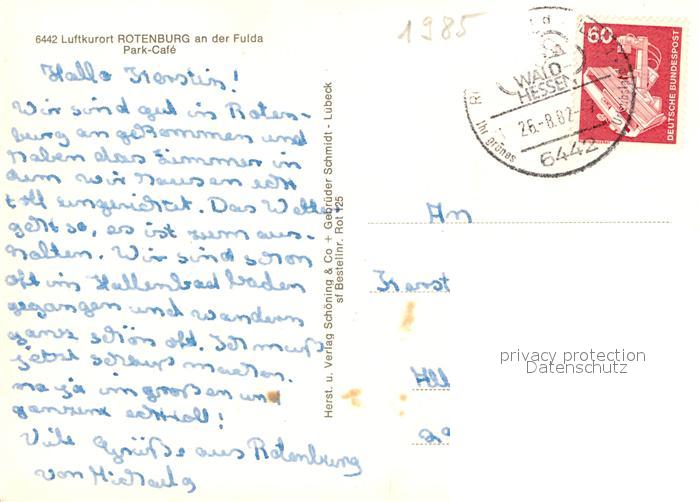 6442 Luftkurort ROTENBURG an der Fulda
Park-Café
Hallo Kerstin!
Wir sind gut in Roten-
burg angekommen und
haben das Zimmer in
dem wir hausen echt
toll eingerichtet. Das Wetter
geht so, es ist zum aus-
halten. Wir sind schon
oft ins Hallenbad baden
gegangen und wandern
ganz schön oft. Ich muß
jetzt schluß machen.
na ja im großen und
ganzen echt toll!
Viele Grüße aus Rotenburg
von Michaela
Herst. u. Verlag Schöning & Co + Gebrüder Schmidt - Lübeck
sf Bestellnr. Rot 125
1985
WALD
HESSEN
Ihr grünes
26.-8.82
6442
60
DEUTSCHE BUNDESPOST
An
Kerst
privacy protection
Datenschutz